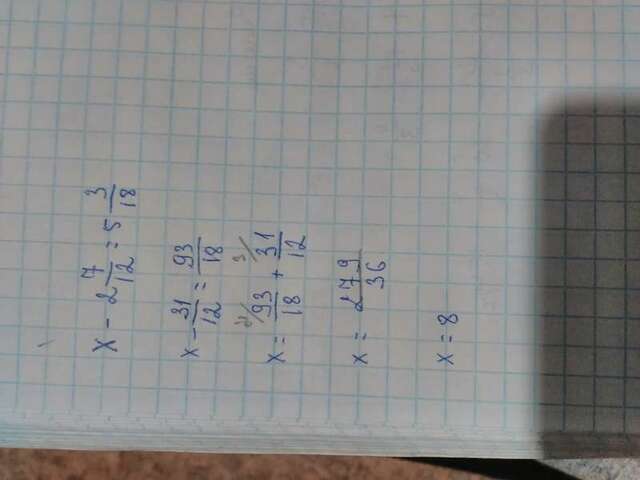 x - 2 7/12 = 5 3/18
x - 31/12 = 93/18
x = 2/ 93/18 + 3/ 31/12
x = 279/36
x = 8